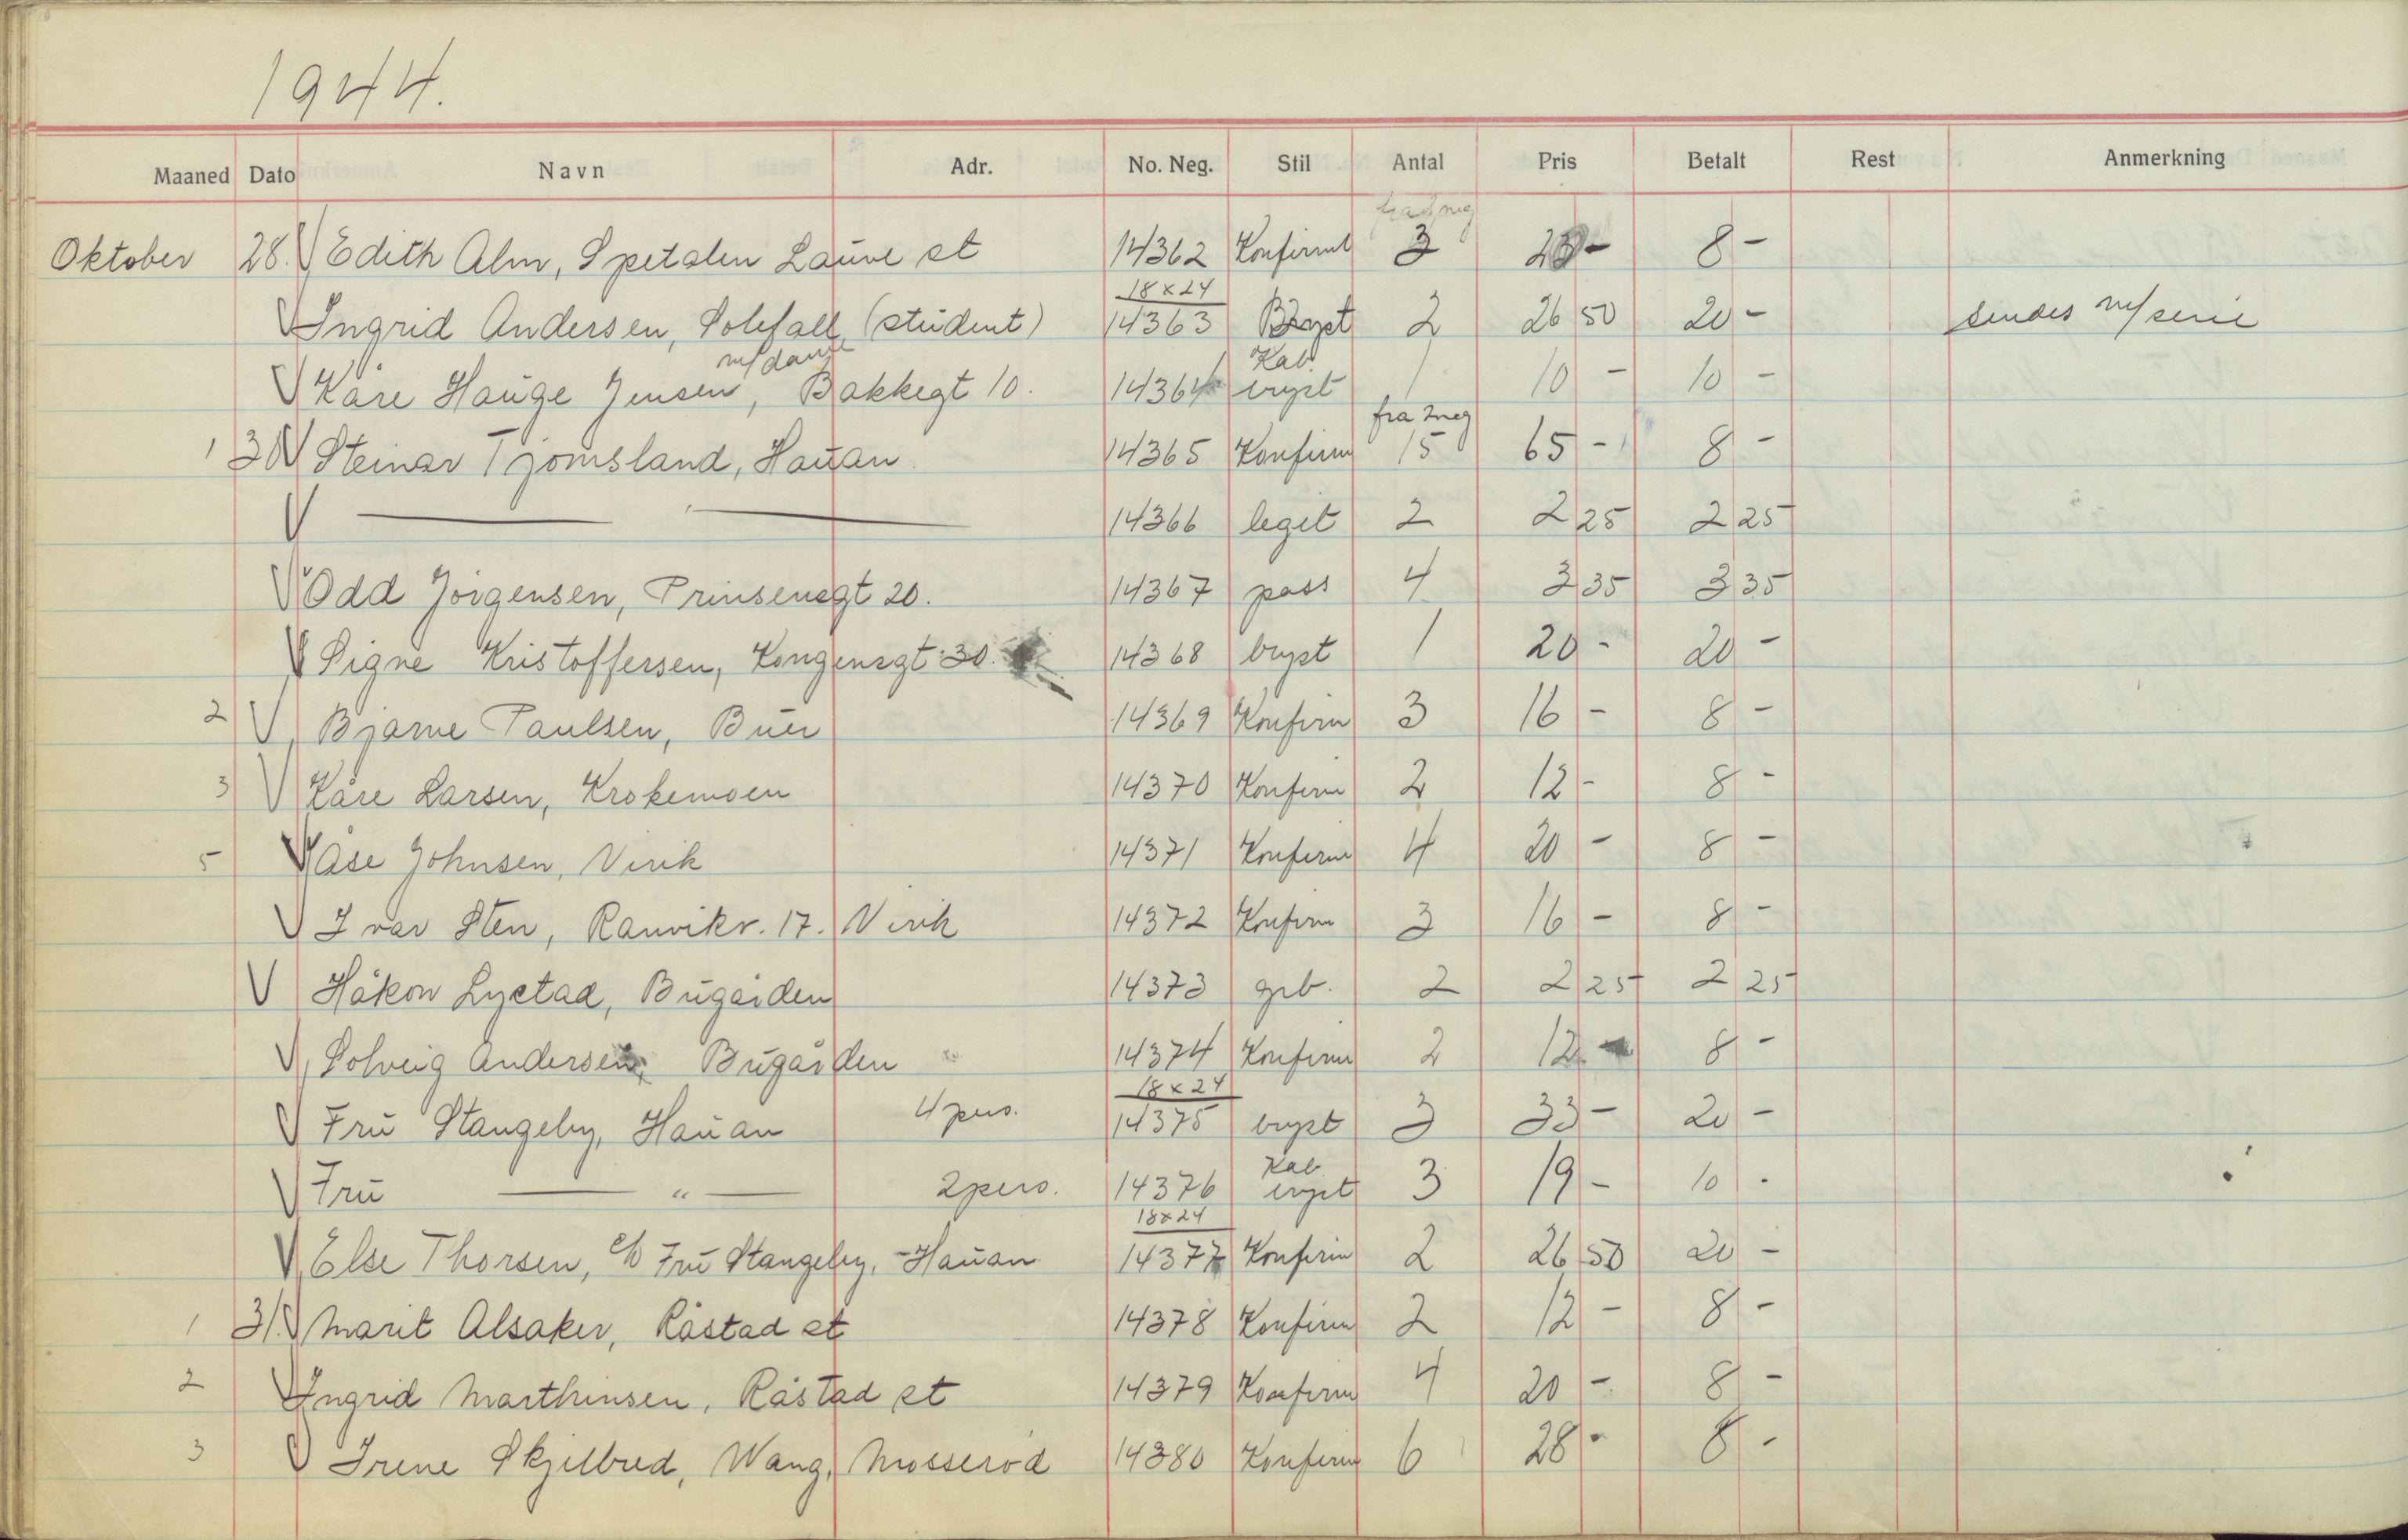 1944.
Maaned Dato Navn Adr. No. Neg. Stil Antal Pris Betalt Rest Anmerkning
fra 2 neg
Oktober 28. V Edith Alm, Spetalen Lauve st 14362 Konfirmt 3 20 - 8 -
18x24
V Ingrid Andersen, Solefall (student) 14363 Bryst 2 26 50 20 - sendes m/serie
m/dame Kab.
V Kåre Hauge Jensen, Bakkegt 10. 14364 bryst 1 10 - 10 -
fra 2 neg
1 30 V Steinar Tjomsland, Hauan 14365 Konfirm 15 65 - 8 -
V — " — 14366 legit 2 2 25 2 25
V Odd Jörgensen, Prinsensgt 20. 14367 pass 4 3 35 3 35
V Signe Kristoffersen, Kongensgt 30. 14368 bryst 1 20 - 20 -
2 V Bjarne Paulsen, Buer 14369 Konfirm 3 16 - 8 -
3 V Kåre Larsen, Krokemoen 14370 Konfirm 2 12 - 8 -
5 V Åse Johnsen, Virik 14371 Konfirm 4 20 - 8 -
V Ivar Sten, Ranvikv. 17. Virik 14372 Konfirm 3 16 - 8 -
V Håkon Lystad, Bugården 14373 grb. 2 2 25 2 25
V Solveig Andersen, Bugården 14374 Konfirm 2 12 - 8 -
18x24
V Fru Stangeby, Hauan 4 pers. 14375 bryst 3 33 - 20 -
Kab
V Fru — " — 2 pers. 14376 bryst 3 19 - 10 -
18x24
V Else Thorsen, c/o Fru Stangeby, - Hauan 14377 Konfirm 2 26 50 20 -
1 31. V Marit Alsaker, Råstad st 14378 Konfirm 2 12 - 8 -
2 V Ingrid Marthinsen, Råstad st 14379 Konfirm 4 20 - 8 -
3 V Irene Skjelbred, Wang, Mosserød 14380 Konfirm 6 28 - 8 -